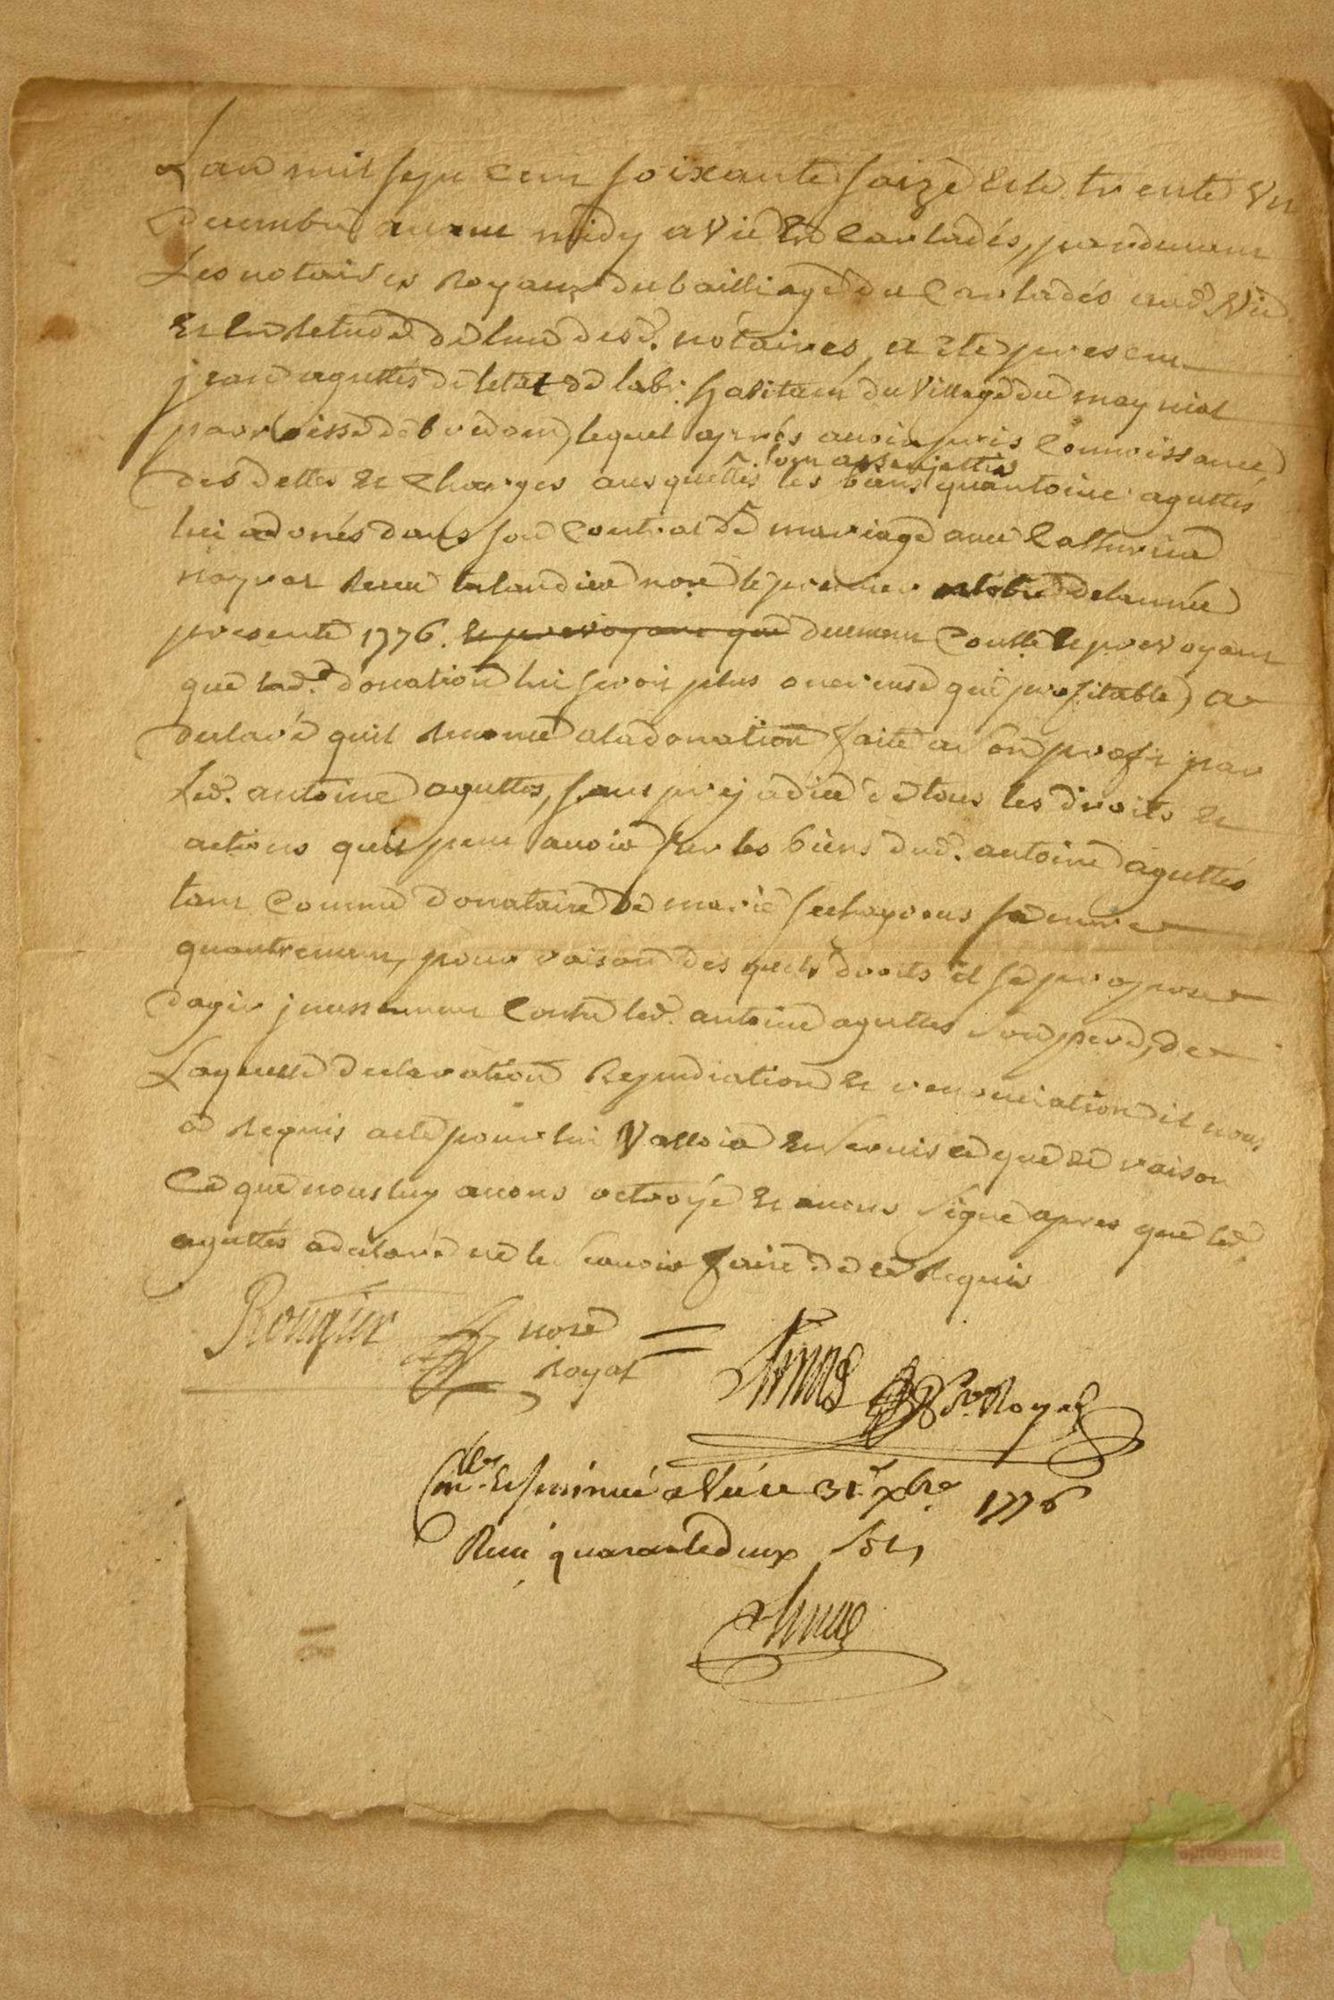 Lan mil sept cent soixante saize et le trente un
decembre avant midy a Vic En Carladés, pardevant
Les notaires Royaux du bailliage du Carladés aud. Vic
et En letude de lun desd. notaires, a eté present
jean aguttes de letat de lab. habitant du village du maynial
parroisse de bredom, lequel aprés avoir pris Connoissance
des dettes et charges ausquelles sont assujettis les biens quantoine aguttes
lui a donés dans son Contrat de mariage avec Catherine
Recu nore le premier octobre de lannée
presente 1776. et prevoyant que duement Contlle et prevoyant
que lad. donation lui seroit plus onereuse que profitable, a
declaré quil renonce a la donation faite a son profit par
led. antoine aguttes, sans prejudice de tous les droits et
actions quil peut avoir sur les biens dud. antoine aguttes
tant comme donataire de marie sa mere
quautrement, pour raison des quels droits il se propose
dagir incessamment Contre led. antoine aguttes son pere, de
Laquelle declaration Repudiation et renonciation il nous
a Requis acte pour lui Valloir et servir ce que de raison
Ce que nous luy avons octroyé et avons signé apres que led.
aguttés a declaré ne le scavoir faire de ce Requis
nore
Royal
No. Royal
Clle. et insinué a Vic le 31 xbre 1776
Recu quarante deux sols
aprogemere